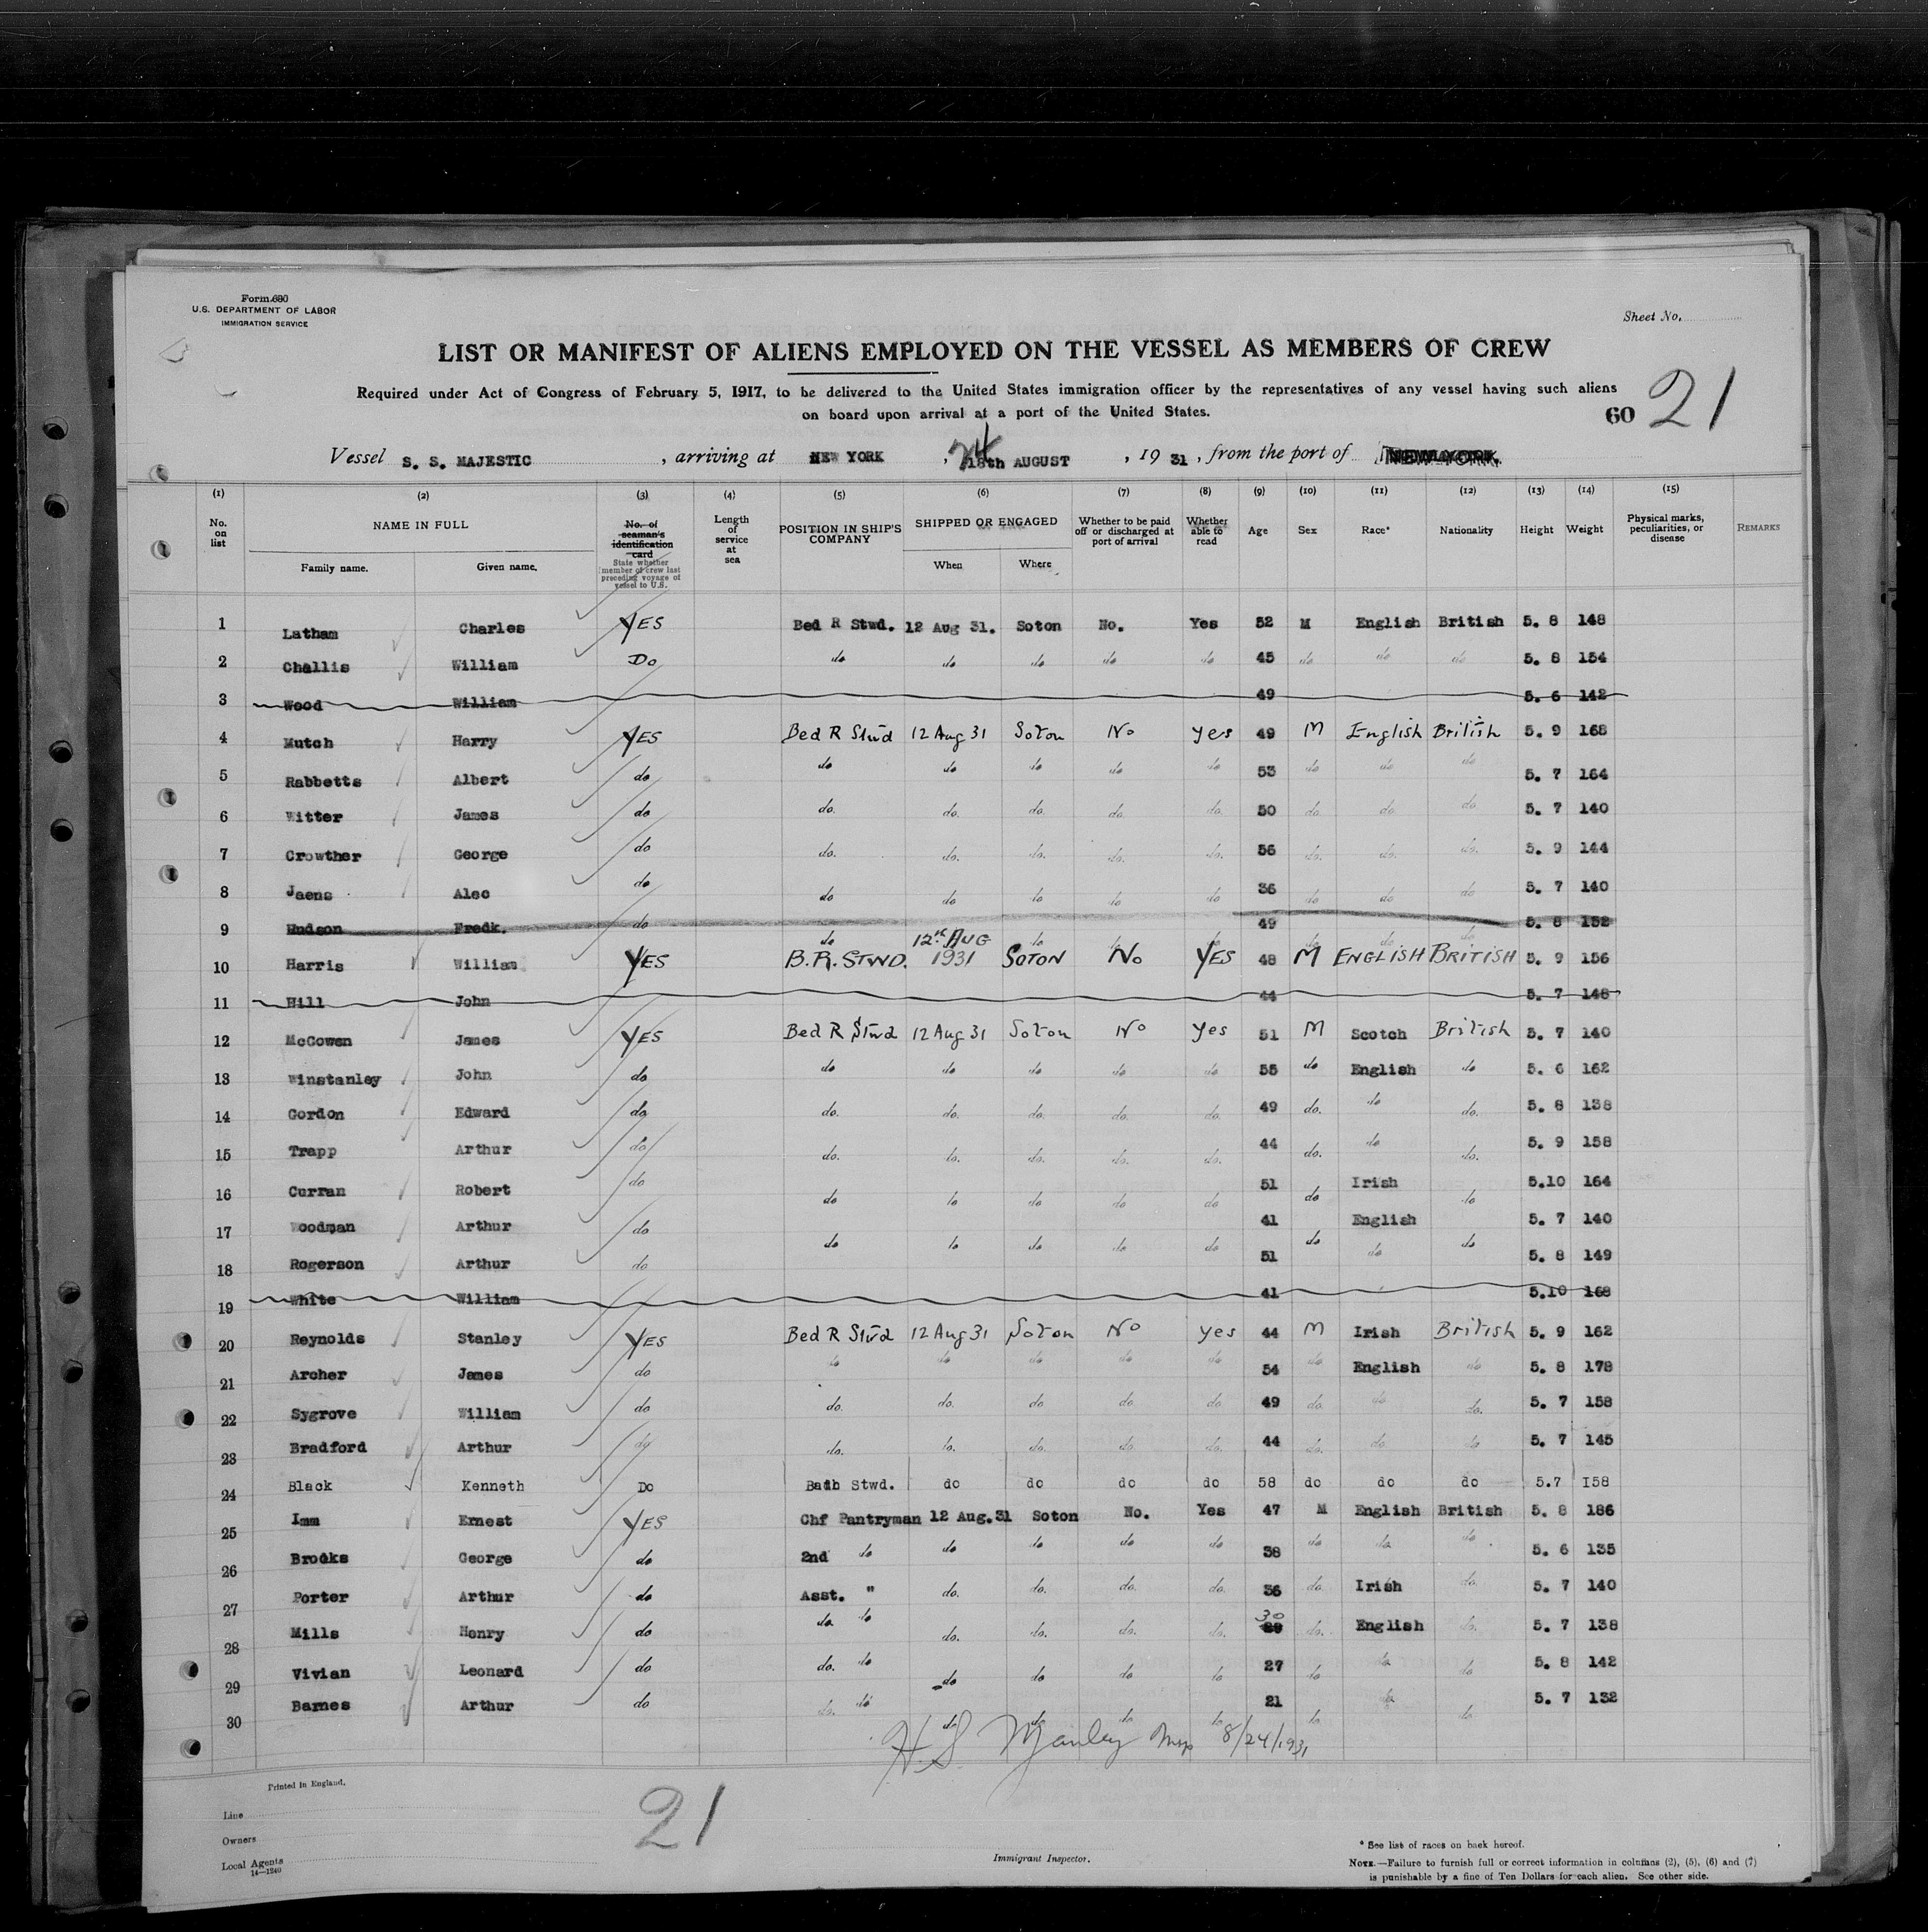 Form 680
U.S. DEPARTMENT OF LABOR
IMMIGRATION SERVICE
Sheet No.
LIST OR MANIFEST OF ALIENS EMPLOYED ON THE VESSEL AS MEMBERS OF CREW
Required under Act of Congress of February 5, 1917, to be delivered to the United States immigration officer by the representatives of any vessel having such aliens
on board upon arrival at a port of the United States.
60 21
Vessel S. S. MAJESTIC , arriving at NEW YORK , 24 18th AUGUST , 19 31 , from the port of NEW YORK.
(1) (2) (3) (4) (5) (6) (7) (8) (9) (10) (11) (12) (13) (14) (15)
No. on list NAME IN FULL Family name. Given name. No. of seaman's identification card State whether member of crew last preceding voyage of vessel to U.S. Length of service at sea POSITION IN SHIP'S COMPANY SHIPPED OR ENGAGED When Where Whether to be paid off or discharged at port of arrival Whether able to read Age Sex Race* Nationality Height Weight Physical marks, peculiarities, or disease REMARKS
1 Latham Charles YES Bed R Stwd. 12 Aug 31. Soton No. Yes 52 M English British 5. 8 148
2 Challis William Do do do do do do 45 do do do 5. 8 154
3 Wood William 49 5. 6 142
4 Mutch Harry YES Bed R Stwd 12 Aug 31 Soton No yes 49 M English British 5. 9 168
5 Rabbetts Albert do do do do do do 53 do do do 5. 7 164
6 Witter James do do. do. do. do. do. 50 do do do 5. 7 140
7 Crowther George do do. do. do. do. do. 56 do. do. do. 5. 9 144
8 Jaens Alec do do do do do do 36 do do do 5. 7 140
9 Hudson Fredk. do do do do do 49 do do do 5. 8 152
10 Harris William YES B.R. STWD. 12th AUG 1931 SOTON No YES 48 M ENGLISH BRITISH 5. 9 156
11 Hill John 44 5. 7 148
12 McGowen James YES Bed R Stwd 12 Aug 31 Soton No yes 51 M Scotch British 5. 7 140
13 Winstanley John do do do do do do 55 do English do 5. 6 162
14 Gordon Edward do do. do. do. do. do. 49 do. do do. 5. 8 138
15 Trapp Arthur do do. do. do. do. do. 44 do. do do. 5. 9 158
16 Curran Robert do do do do do do 51 do Irish do 5.10 164
17 Woodman Arthur do do do do do do 41 do English do 5. 7 140
18 Rogerson Arthur do 51 do 5. 8 149
19 White William 41 5.10 168
20 Reynolds Stanley YES Bed R Stwd 12 Aug 31 Soton No yes 44 M Irish British 5. 9 162
21 Archer James do do do do do do 54 do English do 5. 8 178
22 Sygrove William do do. do. do do do 49 do. do do. 5. 7 158
23 Bradford Arthur do do. do. do. do. do. 44 do. do. do 5. 7 145
24 Black Kenneth Do Bath Stwd. do do do do 58 do do do 5.7 I58
25 Imm Ernest YES Chf Pantryman 12 Aug.31 Soton No. Yes 47 M English British 5. 8 186
26 Brooks George do 2nd do do do do do 38 do do do 5. 6 135
27 Porter Arthur do Asst. " do. do. do. do. 36 do. Irish do. 5. 7 140
28 Mills Henry do do. do do. do. do. do. 30 29 do. English do. 5. 7 138
29 Vivian Leonard do do. do do do do do 27 do do do 5. 8 142
30 Barnes Arthur do do. do do do do do 21 do do do 5. 7 132
H.S. Manley Insp 8/24/1931
Printed in England.
21
Line
Owners
Local Agents
14—1240
Immigrant Inspector.
* See list of races on back hereof.
NOTE.—Failure to furnish full or correct information in columns (2), (5), (6) and (7)
is punishable by a fine of Ten Dollars for each alien. See other side.